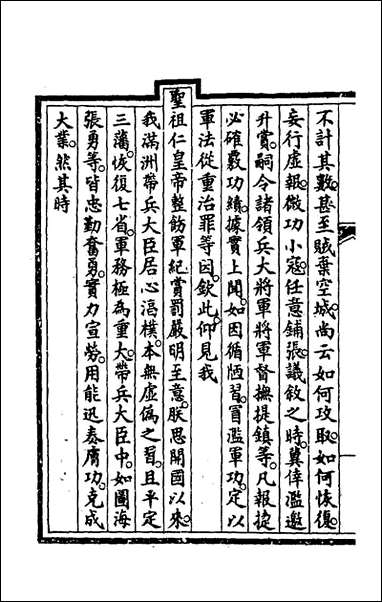 不計其數甚至賊棄空城尚云如何攻取如何恢復
妄行虛報微功小寇任意鋪張議敘之時冀倖濫邀
升賞嗣令諸領兵大將軍將軍督撫提鎮等凡報捷
必確覈功績據實上聞如因循陋習冒濫軍功定以
軍法從重治罪等因欽此仰見我
聖祖仁皇帝整飭軍紀賞罰嚴明至意朕思開國以來
我滿洲帶兵大臣居心渢樸本無虛偽之習且平定
三藩恢復七省軍務極為重大帶兵大臣中如圖海
張勇等皆忠勤奮勇實力宣勞用能迅奏膚功克成
大業然其時